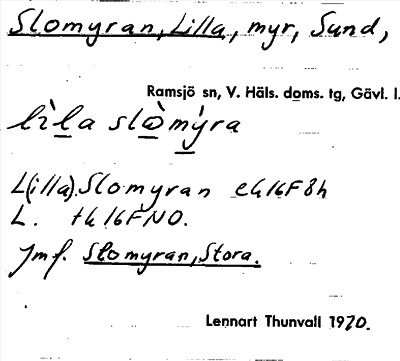 Slomyran, Lilla, myr, Sund,
Ramsjö sn, V. Häls. doms. tg, Gävl. l.
lìla slòmýra
L(illa) Slomyran ek 16F8h
L. tk 16FNO.
Jmf. Slomyran, Stora.
Lennart Thunvall 1970.